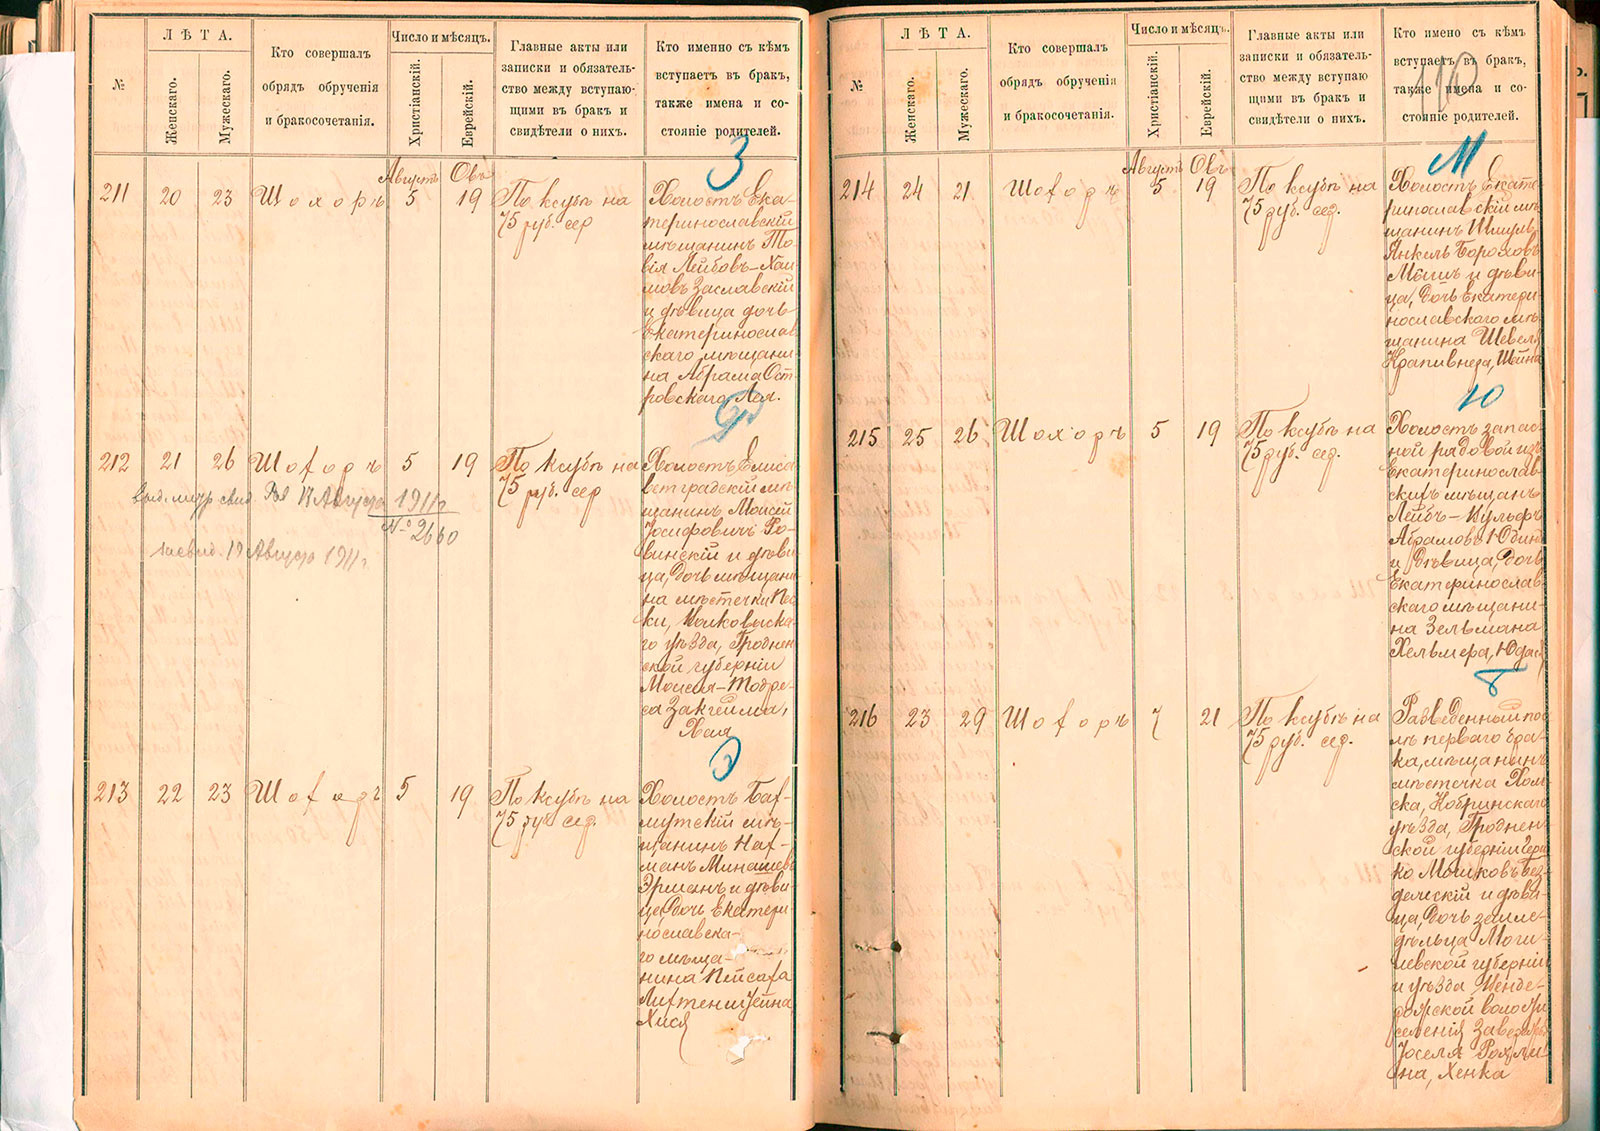 №
ЛѢТА.
Женскаго.
Мужескаго.
Кто совершалъ
обрядъ обрученія
и бракосочетанія.
Число и мѣсяцъ.
Христіанскій.
Еврейскій.
Главные акты или
записки и обязатель-
ство между вступаю-
щими въ бракъ и
свидѣтели о нихъ.
Кто именно съ кѣмъ
вступаетъ въ бракъ,
также имена и со-
стояніе родителей.
З
Августъ Овъ
211 20 23 Шохоръ 5 19 По ксубѣ на
75 руб. сер
Холостъ Ека-
теринославскій
мѣщанинъ То-
вія Лейбовъ-Хаи-
мовъ Заславскій
и дѣвица дочь
Екатеринослав
скаго мѣщани-
на Абрама Ост-
ровскаго Лея.
212 21 26 Шохоръ 5 19 По ксубѣ на
75 руб. сер
Холостъ Елиса-
ветградскій мѣ-
щанинъ Моисей
Іосифовичъ Ро-
винскій и дѣви-
ца, дочь мѣщани-
на мѣстечка Пес-
ки, Волковыска-
го уѣзда, Гроднен
ской губерніи
Моисея-Тодре-
са Закгейма,
Хая
17 Августа 1911 г
№ 2660
19 Августа 1911 г.
Э
213 22 23 Шохоръ 5 19 По ксубѣ на
75 руб. сер.
Холостъ Бах-
мутскій мѣ-
щанинъ Нах-
манъ Минашевъ
Эрманъ и дѣви-
ца, дочь Екатери-
нославска-
го мѣща-
нина Пейсаха
Лихтенштейна
Хися
№
ЛѢТА.
Женскаго.
Мужескаго.
Кто совершалъ
обрядъ обрученія
и бракосочетанія.
Число и мѣсяцъ.
Христіанскій.
Еврейскій.
Главные акты или
записки и обязатель-
ство между вступаю
щими въ бракъ и
свидѣтели о нихъ.
Кто имено съ кѣмъ
вступаетъ въ бракъ,
также имена и со-
стояніе родителей.
М
Августъ Овъ
214 24 21 Шохоръ 5 19 По ксубѣ на
75 руб. сер.
Холостъ Екате-
ринославскій мѣ-
щанинъ Шмуль
Янкель Бороховъ
и дѣви-
ца, дочь Екатери-
нославскаго мѣ-
щанина Шевеля
Крапивнера, Шейна
Ю
215 25 26 Шохоръ 5 19 По ксубѣ на
75 руб. сер.
Холостъ запас-
ной рядовой изъ
Екатеринослав
скихъ мѣщанъ
Лейбъ-Вульфъ
Абрамовъ Юдинъ
и дѣвица, дочь
Екатеринослав-
скаго мѣщани-
на Зельмана
Хельмера, Юдасъ
Б
216 23 29 Шохоръ 7 21 По ксубѣ на
75 руб. сер.
Разведенный пос
лѣ перваго бра-
ка, мѣщанинъ
мѣстечка Хом-
ска, Кобринскаго
уѣзда, Гроднен
ской губерніи
Мошковъ Без-
дежскій и дѣви-
ца, дочь земле-
дѣльца Моги-
левской губерніи
и уѣзда
волости
селенія
Іоселя Рохли-
на, Хенка